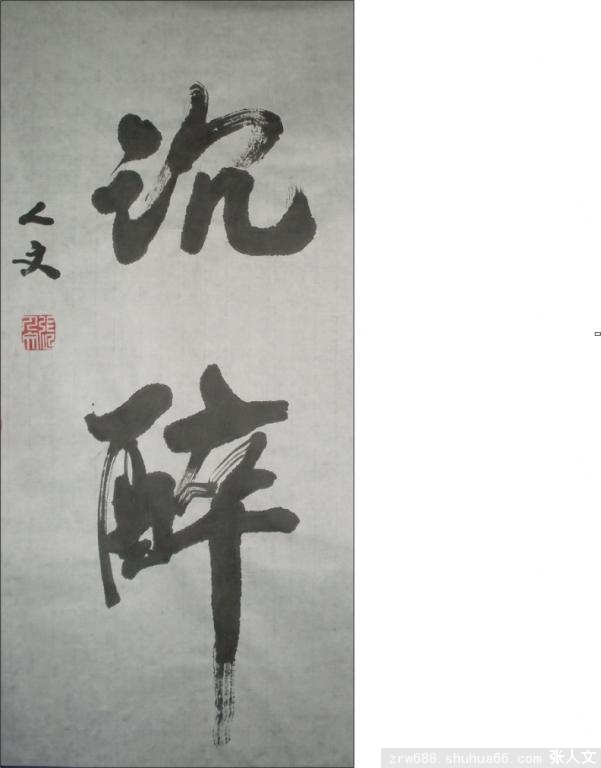 沉醉
人文
zrw688.shuhua66.com 张人文